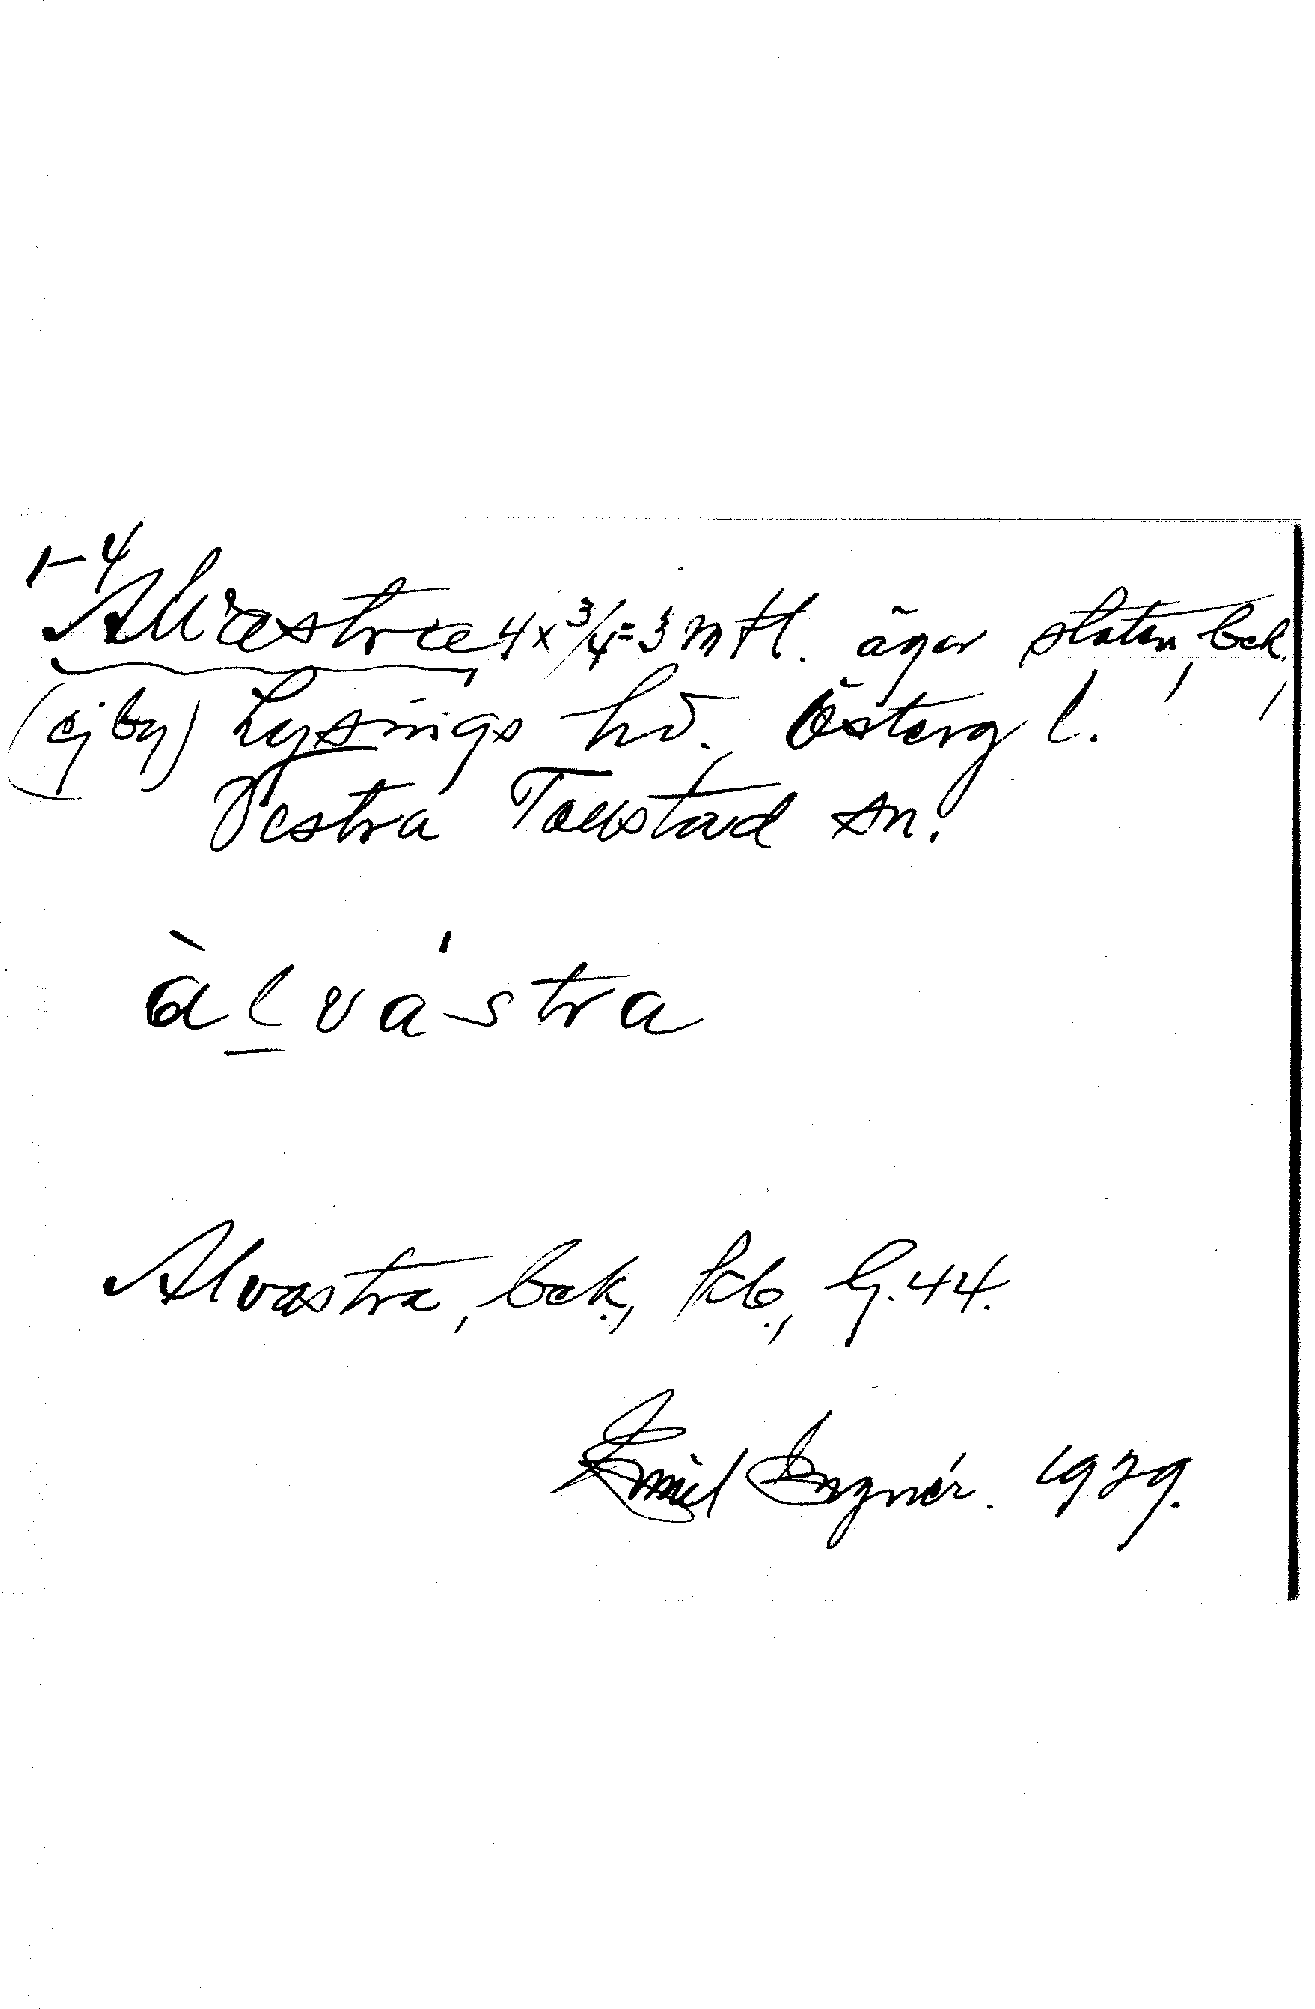 1-4
Alvastra 4 x 3/4 = 3 mtl. äger staten, bek.,
(ej by) Lysings hd., Österg l.
Vestra Tollstad sn.
àlvástra
Alvastra, bek., jdb., G. 44.
Emil 1929.